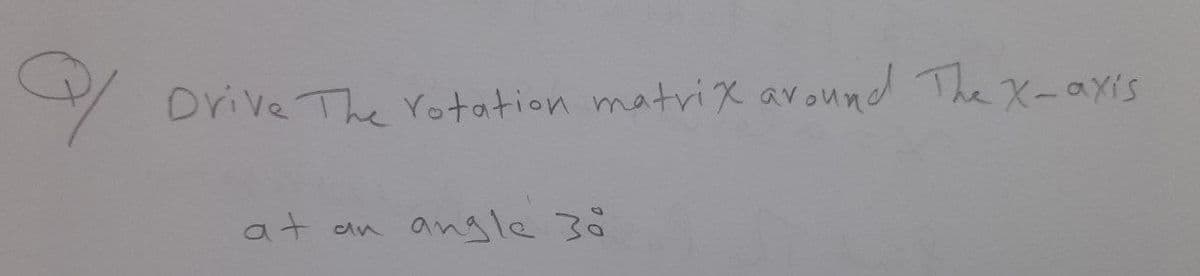 Q/ Drive The rotation matrix around The x-axis
at an angle 30°